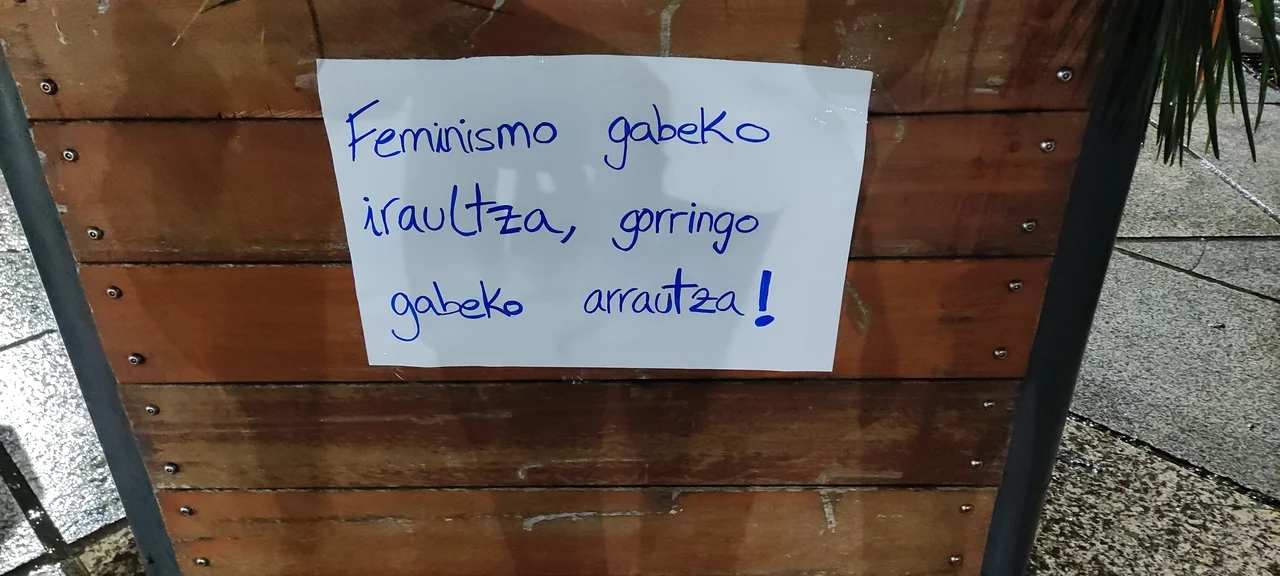 Feminismo gabeko
iraultza, gorringo
gabeko arrautza!